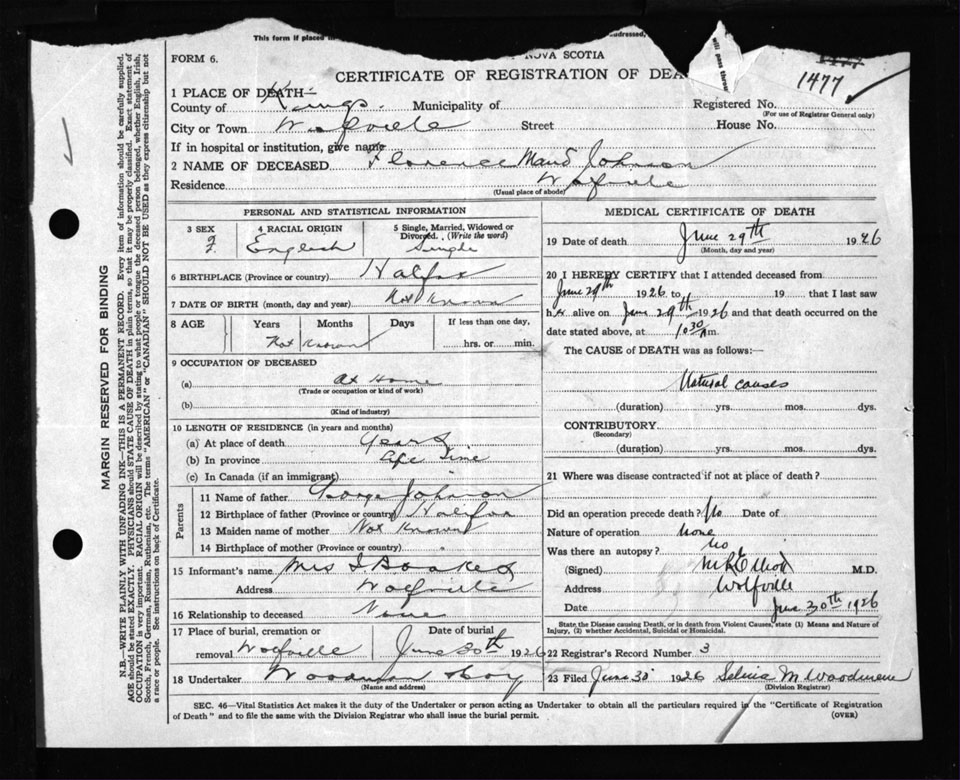 This form if placed in addressed,
will pass throu
NOVA SCOTIA
FORM 6.
CERTIFICATE OF REGISTRATION OF DEA
1477
1 PLACE OF DEATH—
County of Kings. Municipality of Registered No.
(For use of Registrar General only)
City or Town Wolfville Street House No.
If in hospital or institution, give name
2 NAME OF DECEASED Florence Maud Johnson
Residence Wolfville
(Usual place of abode)
PERSONAL AND STATISTICAL INFORMATION
3 SEX 4 RACIAL ORIGIN 5 Single, Married, Widowed or Divorced. (Write the word)
F. English Single
6 BIRTHPLACE (Province or country) Halifax
7 DATE OF BIRTH (month, day and year) Not Known
8 AGE Years Months Days If less than one day,
Not Known hrs. or min.
9 OCCUPATION OF DECEASED
(a) At Home
(Trade or occupation or kind of work)
(b)
(Kind of industry)
10 LENGTH OF RESIDENCE (in years and months)
(a) At place of death Years
(b) In province Life Time
(c) In Canada (if an immigrant)
Parents
11 Name of father George Johnson
12 Birthplace of father (Province or country) Halifax
13 Maiden name of mother Not Known
14 Birthplace of mother (Province or country)
15 Informant's name Mrs
Address Wolfville
16 Relationship to deceased None
17 Place of burial, cremation or Date of burial
removal Wolfville June 30th 1926
18 Undertaker Woodman
(Name and address)
MEDICAL CERTIFICATE OF DEATH
19 Date of death June 29th 1926
(Month, day and year)
20 I HEREBY CERTIFY that I attended deceased from
June 29th 1926 to 19 that I last saw
h alive on June 29th 1926 and that death occurred on the
date stated above, at 10 30 m.
The CAUSE of DEATH was as follows:
Natural causes
(duration) yrs. mos. dys.
CONTRIBUTORY
(Secondary)
(duration) yrs. mos. dys.
21 Where was disease contracted if not at place of death?
Did an operation precede death? No Date of
Nature of operation None
Was there an autopsy? No
(Signed) M.D.
Address Wolfville
Date June 30th 1926
State the Disease causing Death, or in death from Violent Causes, state (1) Means and Nature of
Injury, (2) whether Accidental, Suicidal or Homicidal.
22 Registrar's Record Number 3
23 Filed June 30 1926 Selina M Woodman
(Division Registrar)
SEC. 46—Vital Statistics Act makes it the duty of the Undertaker or person acting as Undertaker to obtain all the particulars required in the "Certificate of Registration
of Death" and to file the same with the Division Registrar who shall issue the burial permit. (OVER)
MARGIN RESERVED FOR BINDING
N.B.—WRITE PLAINLY WITH UNFADING INK—THIS IS A PERMANENT RECORD. Every item of information should be carefully supplied.
AGE should be stated EXACTLY. PHYSICIANS should STATE CAUSE OF DEATH in plain terms, so that it may be properly classified. Exact statement of
OCCUPATION is very important. RACIAL ORIGIN will be described by stating to what people or tongue the deceased person belonged, whether English, Irish,
Scotch, French, German, Russian, Ruthenian, etc. The terms "AMERICAN" or "CANADIAN" SHOULD NOT BE USED as they express citizenship but not
a race or people. See instructions on back of Certificate.